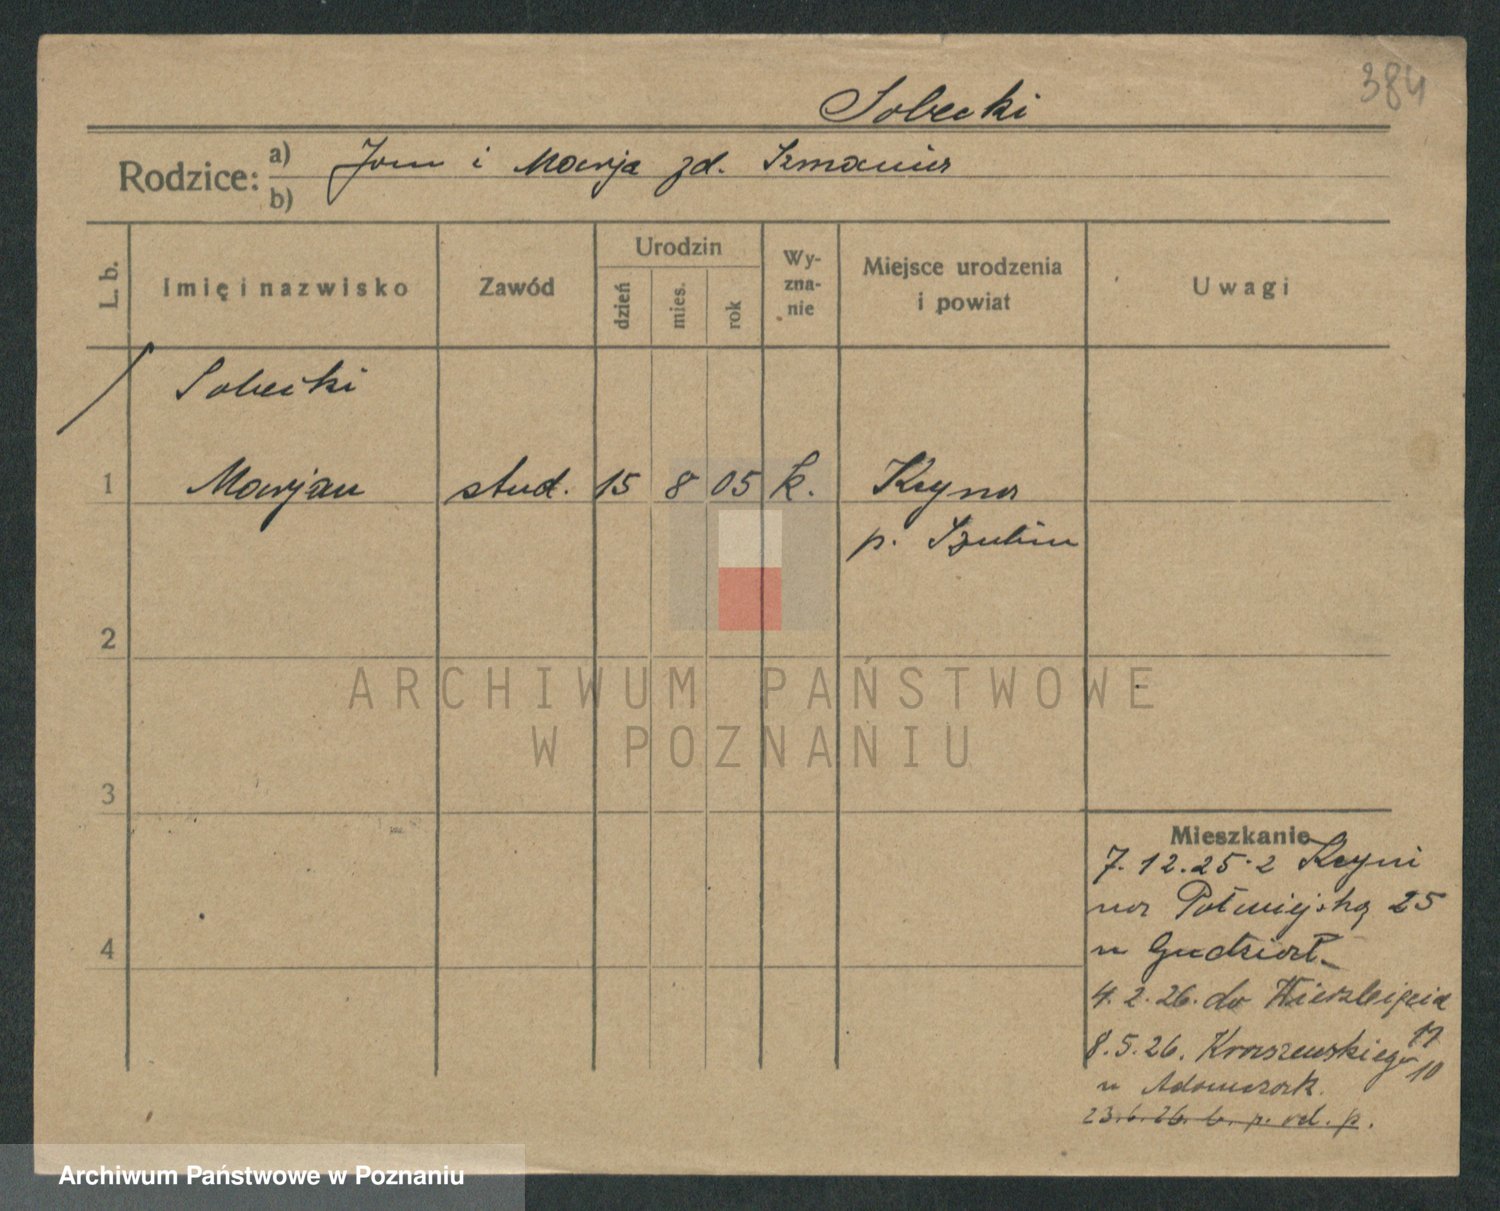 384
Sobecki
Rodzice: a) Jan i Marja zd. Szmania
b)
L. b. Imię i nazwisko Zawód Urodzin dzień mies. rok Wy-zna-nie Miejsce urodzenia i powiat Uwagi
Sobecki
1 Marjan stud. 15 8 05 k. Kcynia
p. Szubin
2
3
4
Mieszkanie
7.12.25 z Kcyni
na Półwiejską 25
u
4.2.26. do
8.5.26. Kraszewskiego 17
10
u Adamczak.
23.6.26.
ARCHIWUM PAŃSTWOWE
W POZNANIU
Archiwum Państwowe w Poznaniu